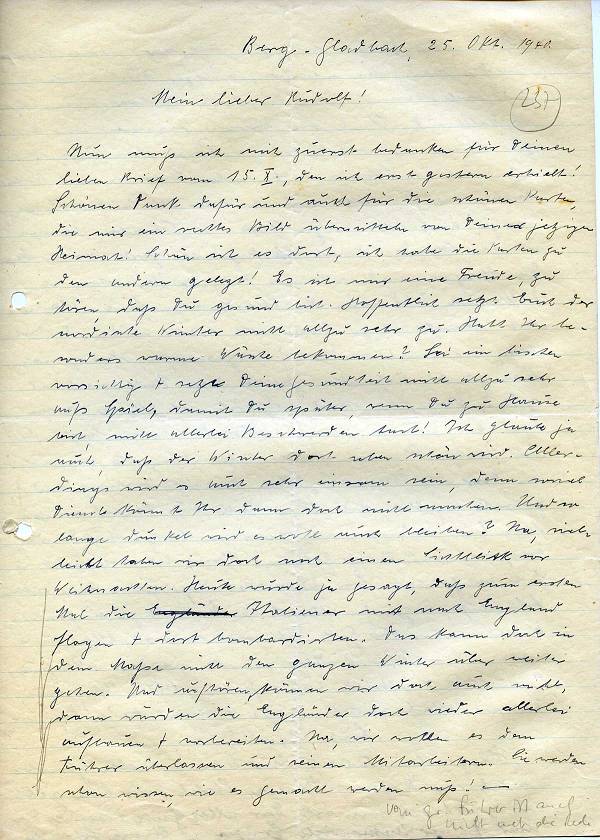 Berg.-Gladbach, 25. Okt. 1940.
237
Mein lieber Rudolf!
Nun muß ich mich zuerst bedanken für Deinen
lieben Brief vom 15. X., den ich erst gestern erhielt!
Schönen Dank dafür und auch für die schönen Karten,
die mir ein rechtes Bild übermitteln von Deiner jetzigen
Heimat! Schön ist es dort, ich habe die Karten zu
den andern gelegt! Es ist mir eine Freude, zu
hören, daß Du gesund bist. Hoffentlich setzt Euch der
nordische Winter nicht allzu sehr zu. Habt Ihr be-
sonders warme Wäsche bekommen? Sei ein bischen
vorsichtig + setze Deine Gesundheit nicht allzu sehr
aufs Spiel, damit Du später, wenn Du zu Hause
bist, nicht allerlei Beschwerden hast! Ich glaube ja
auch, daß der Winter dort oben schön wird. Aller-
dings wird es auch sehr einsam sein, denn soviel
Dienst könnt Ihr dann doch nicht machen. Und so
lange dunkel wird es wohl auch bleiben? Na, viel-
leicht haben wir doch noch einen Lichtblick vor
Weihnachten. Heute wurde ja gesagt, daß zum ersten
Mal die Engländer Italiener mit nach England
flogen + dort bombardierten. Das kann doch in
dem Maße nicht den ganzen Winter über weiter
gehen. Und aufhören, können wir doch auch nicht,
dann würden die Engländer doch wieder allerlei
aufbauen + vorbereiten. Na, wir wollen es dem
Führer überlassen und seinen Mitarbeitern. Sie werden
schon wissen, wie es gemacht werden muß! —
vom Führer ist auch
nicht mehr die Rede